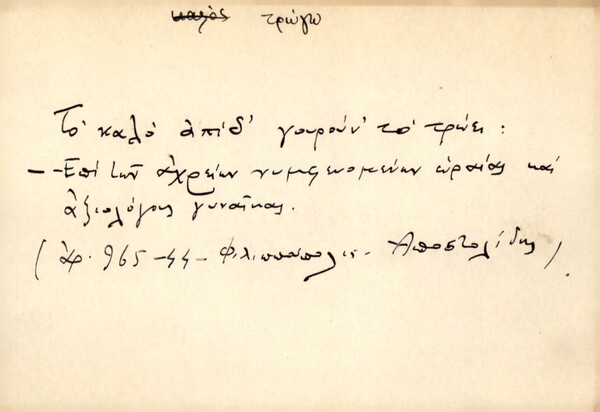 καλὸς τρώγω
Τὸ καλὸ ἀπίδ' γουρούν' τὸ τρώει :
– Ἐπὶ τῶν ἀχρείων νυμφευομένων ὡραίας καί
ἀξιολόγους γυναῖκας.
(ἀρ. 965 – 44 – Φιλιππούπολις. Ἀποστολίδης).